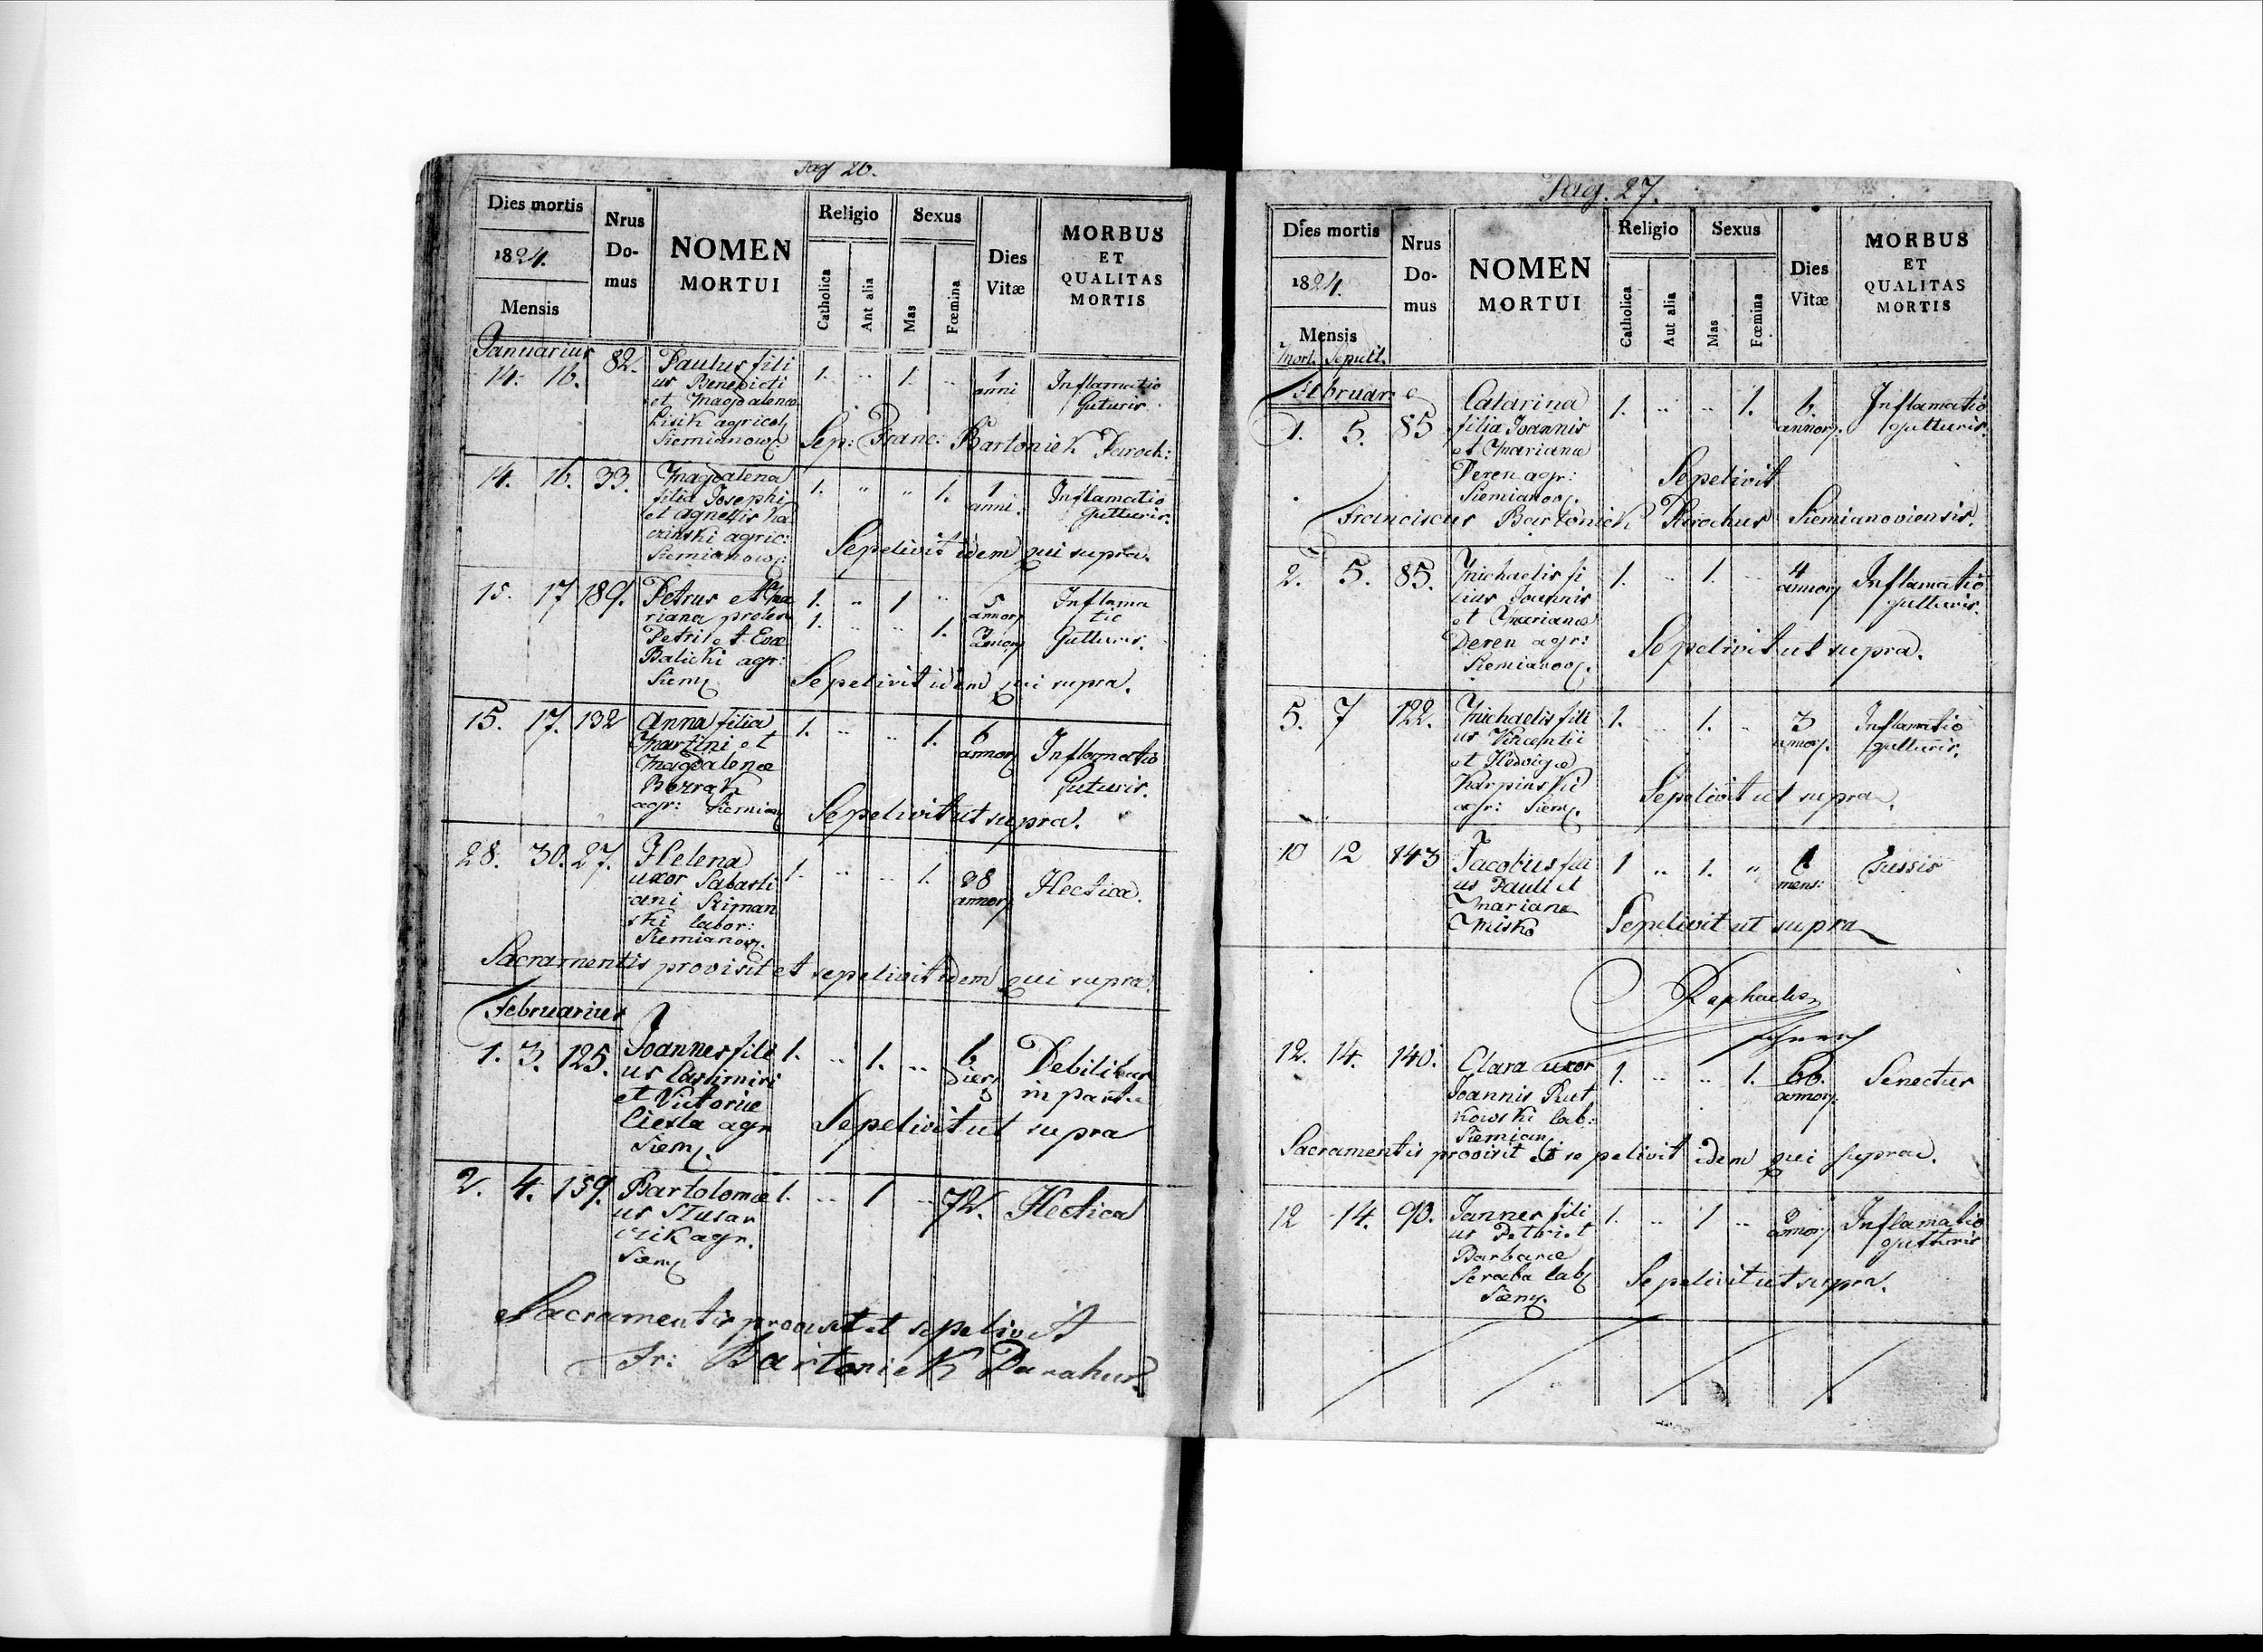 Pag 26.
Dies mortis
1824.
Mensis
Nrus
Do-
mus
NOMEN
MORTUI
Religio
Catholica
Aut alia
Sexus
Mas
Fœmina
Dies
Vitæ
MORBUS
ET
QUALITAS
MORTIS
Januarius
14. 16. 82. Paulus fili 1. " 1. " 1 Inflamatio
us Benedicti anni Guturis
et Magdalenæ
Lisik agricol
Siemianow Sep: Franc: Bartoniek Paroch:
14. 16. 33. Magdalena 1. " " 1. 1 Inflamatio
filia Josephi anni. Gutturis.
et Agnetis Ka
czinski agric:
Siemianow: Sepelivit idem qui supra.
15. 17 189. Petrus et Ma 1. " 1 " 5 Inflama
riana proles 1. " " 1. annor tio
Petri et Evæ annor Gutturis.
Balicki agr:
Siem Sepelivit idem qui supra.
15. 17. 132 Anna filia 1. " " 1. 6 Inflamatio
Martini et annor Guturis.
Magdalenæ
agr: Siemian Sepelivit ut supra.
28. 30. 27. Helena 1. " " 1. 28 Hectica.
uxor Sabasti annor
ani Siman
ski labor:
Siemianow.
Sacramentis provisit et sepelivit idem qui supra.
Februarius
1. 3. 125. Joannes fili 1. " 1. " 6 Debilitas
us Casimiri dier in partu
et Victoriæ
Ciesla agr Sepelivit ut supra
Siem.
2. 4. 159. Bartolomæ 1. " 1 " 72. Hectica
us Slusar
czik agr.
Siem
Sacramentis provisit et sepelivit
Fr: Bartoniek Parahus
Pag. 27.
Dies mortis
1824.
Mensis
Mort. Sepult.
Nrus
Do-
mus
NOMEN
MORTUI
Religio
Catholica
Aut alia
Sexus
Mas
Fœmina
Dies
Vitæ
MORBUS
ET
QUALITAS
MORTIS
Februar
1. 5. 85 Catarina 1. " " 1. 6. Inflamatio
filia Joannis annor. gutturis.
et Marianæ
Deren agr: Sepelivit
Siemianow.
Franciscus Bartoniek Parochus Siemianoviensis.
2. 5. 85. Michaelis fi 1. " 1. " 4 Inflamatio
lius Joannis annor gutturis.
et Marianæ
Deren agr: Sepelivit ut supra.
Siemianow.
5. 7 122. Michaelis fili 1. " 1. " 3 Inflamatio
us Vincentii annor. gutturis.
et Hedvigæ
Karpinski Sepelivit ut supra.
agr: Siem.
10 12 143 Jacobus fili 1 " 1. " 1 Tussis
us Pauli et mens:
Mariana Sepelivit ut supra
Misko
12. 14. 140. Clara uxor 1. " " 1. 66. Senectus
Joannis Rut annor.
kowski lab:
Siemian
Sacramentis provisit et sepelivit idem qui supra.
12 14. 90. Jannes fili 1. " 1 " Inflamatio
us Petri et annor gutturis
Barbaræ
Seraba lab Sepelivit ut supra.
Siem.